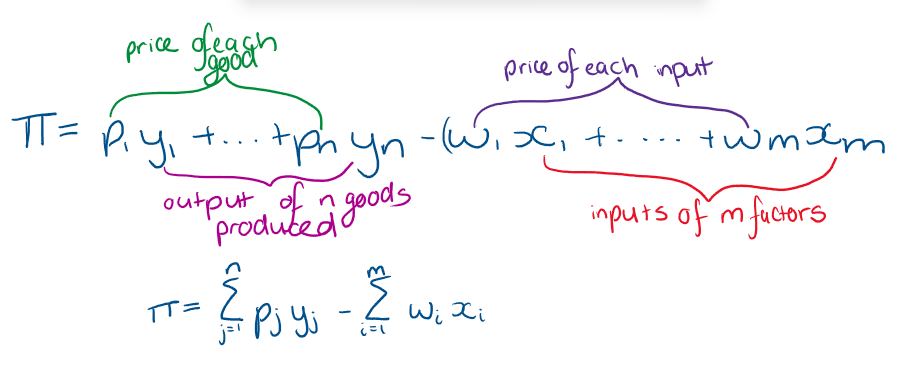 price of each good
price of each input
π = p₁ y₁ + ... + pn yn - (w₁ x₁ + ..... + wm xm
output of n goods produced
inputs of m factors
π = ∑ⁿⱼ₌₁ pⱼ yⱼ - ∑ᵐᵢ₌₁ wᵢ xᵢ